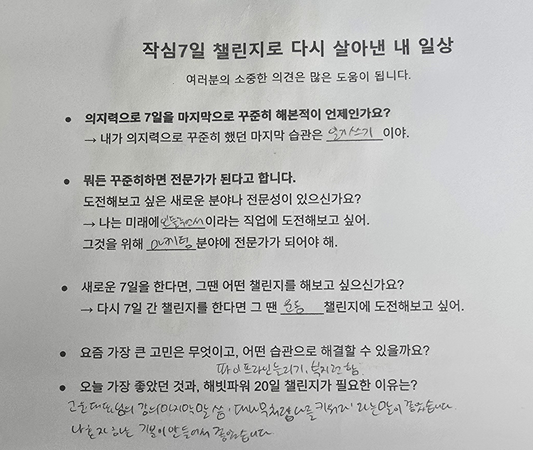 작심7일 챌린지로 다시 살아낸 내 일상
여러분의 소중한 의견은 많은 도움이 됩니다.
● 의지력으로 7일을 마지막으로 꾸준히 해본적이 언제인가요?
→ 내가 의지력으로 꾸준히 했던 마지막 습관은 일기쓰기 이야.
● 뭐든 꾸준히하면 전문가가 된다고 합니다.
도전해보고 싶은 새로운 분야나 전문성이 있으신가요?
→ 나는 미래에 인플루언서 이라는 직업에 도전해보고 싶어.
그것을 위해 마케팅 분야에 전문가가 되어야 해.
● 새로운 7일을 한다면, 그땐 어떤 챌린지를 해보고 싶으신가요?
→ 다시 7일 간 챌린지를 한다면 그 땐 운동 챌린지에 도전해보고 싶어.
● 요즘 가장 큰 고민은 무엇이고, 어떤 습관으로 해결할 수 있을까요?
파이프라인 늘리기, 부지런함
● 오늘 가장 좋았던 것과, 해빗파워 20일 챌린지가 필요한 이유는?
대표님의 강의 마지막 말씀, '대나무처럼 나를 키워라' 라는 말이 좋았습니다
기분이 안들어서 좋았습니다